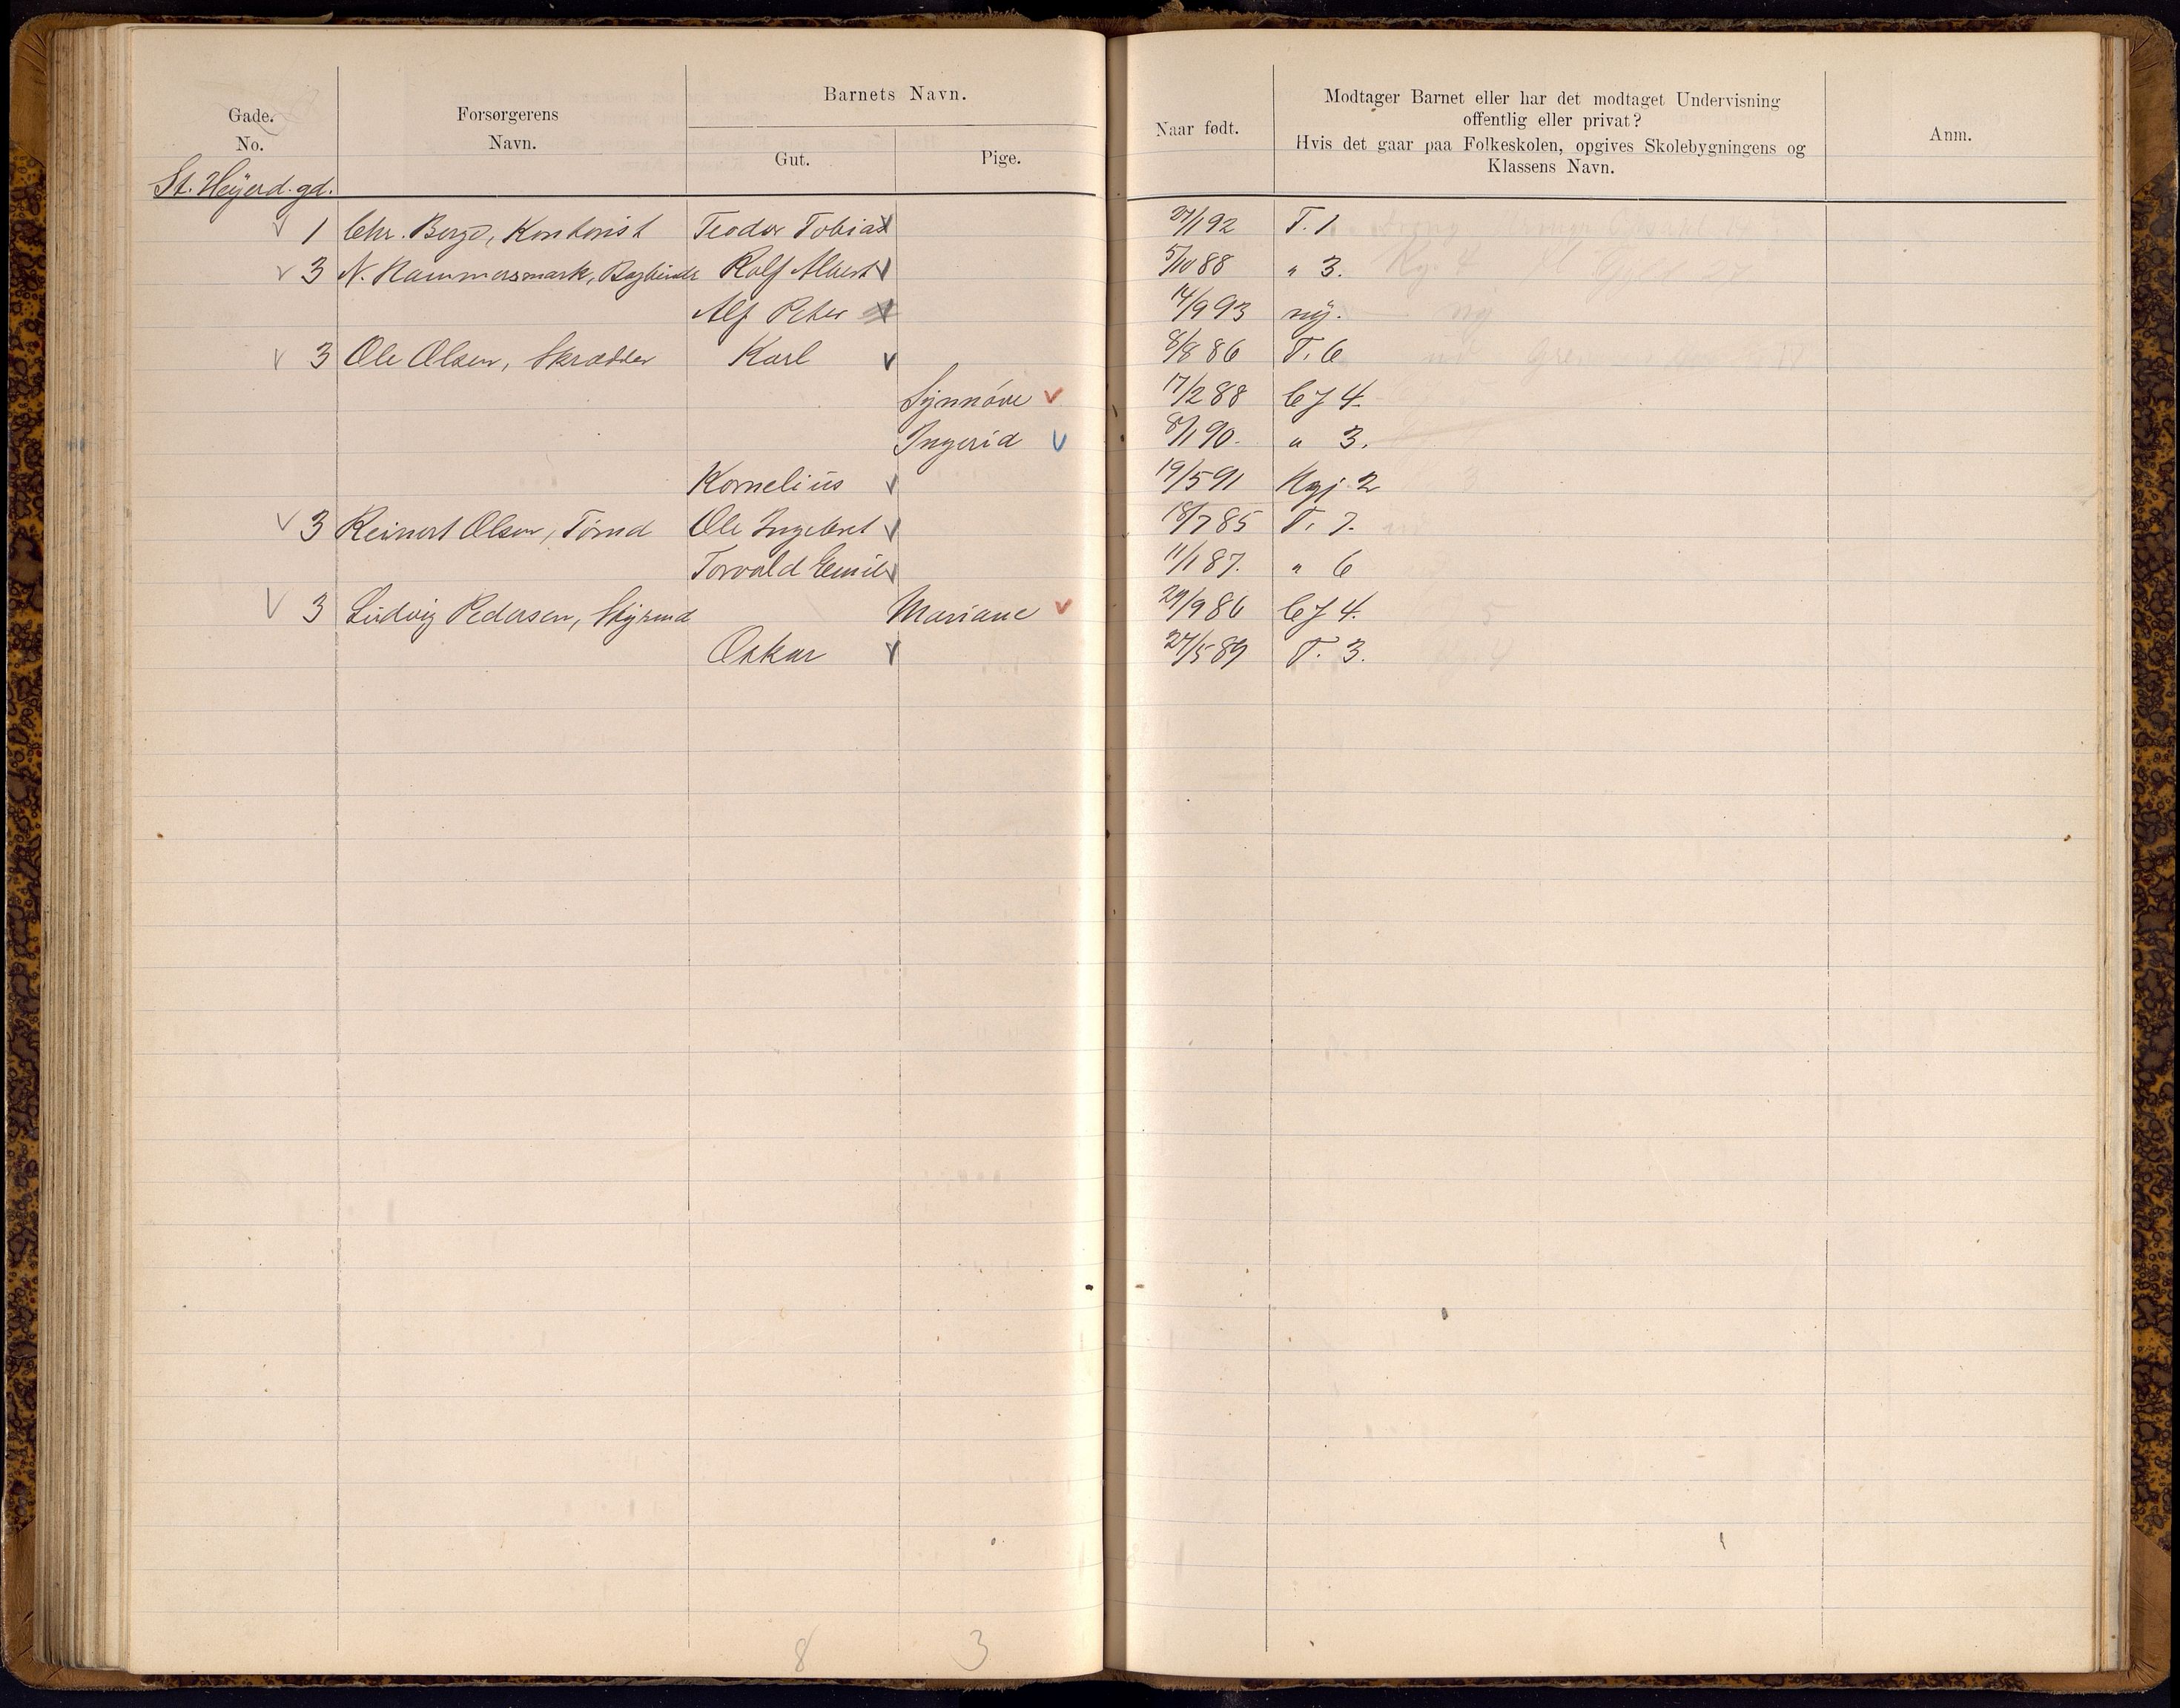 Gade. No.
Forsørgerens Navn.
Barnets Navn.
Gut.
Pige.
Naar født.
Modtager Barnet eller har det modtaget Undervisning offentlig eller privat?
Hvis det gaar paa Folkeskolen, opgives Skolebygningens og Klassens Navn.
Anm.
St. Heyerd. gd.
1 Chr. Berge, Kontorist Teodor Tobias 27/1 92 T. 1
3 N. Hammersmark, Bogbinder Rolf Albert 5/10 88 " 3.
Alf Peter 14/9 93 ny.
3 Ole Olsen, Skrædder Karl 8/8 86 T. 6
Synnöve 17/2 88 CJ 4.
Ingerid 8/1 90. " 3.
Kornelius 19/5 91 Kgj. 2
3 Reinert Olsen, Tømd Ole Ingebret 18/7 85 T. 7.
Torvald Emil 11/1 87. " 6
3 Ludvig Pedersen, Styrmd Mariane 29/9 86 CJ 4.
Oskar 27/5 89 T. 3.
8 3